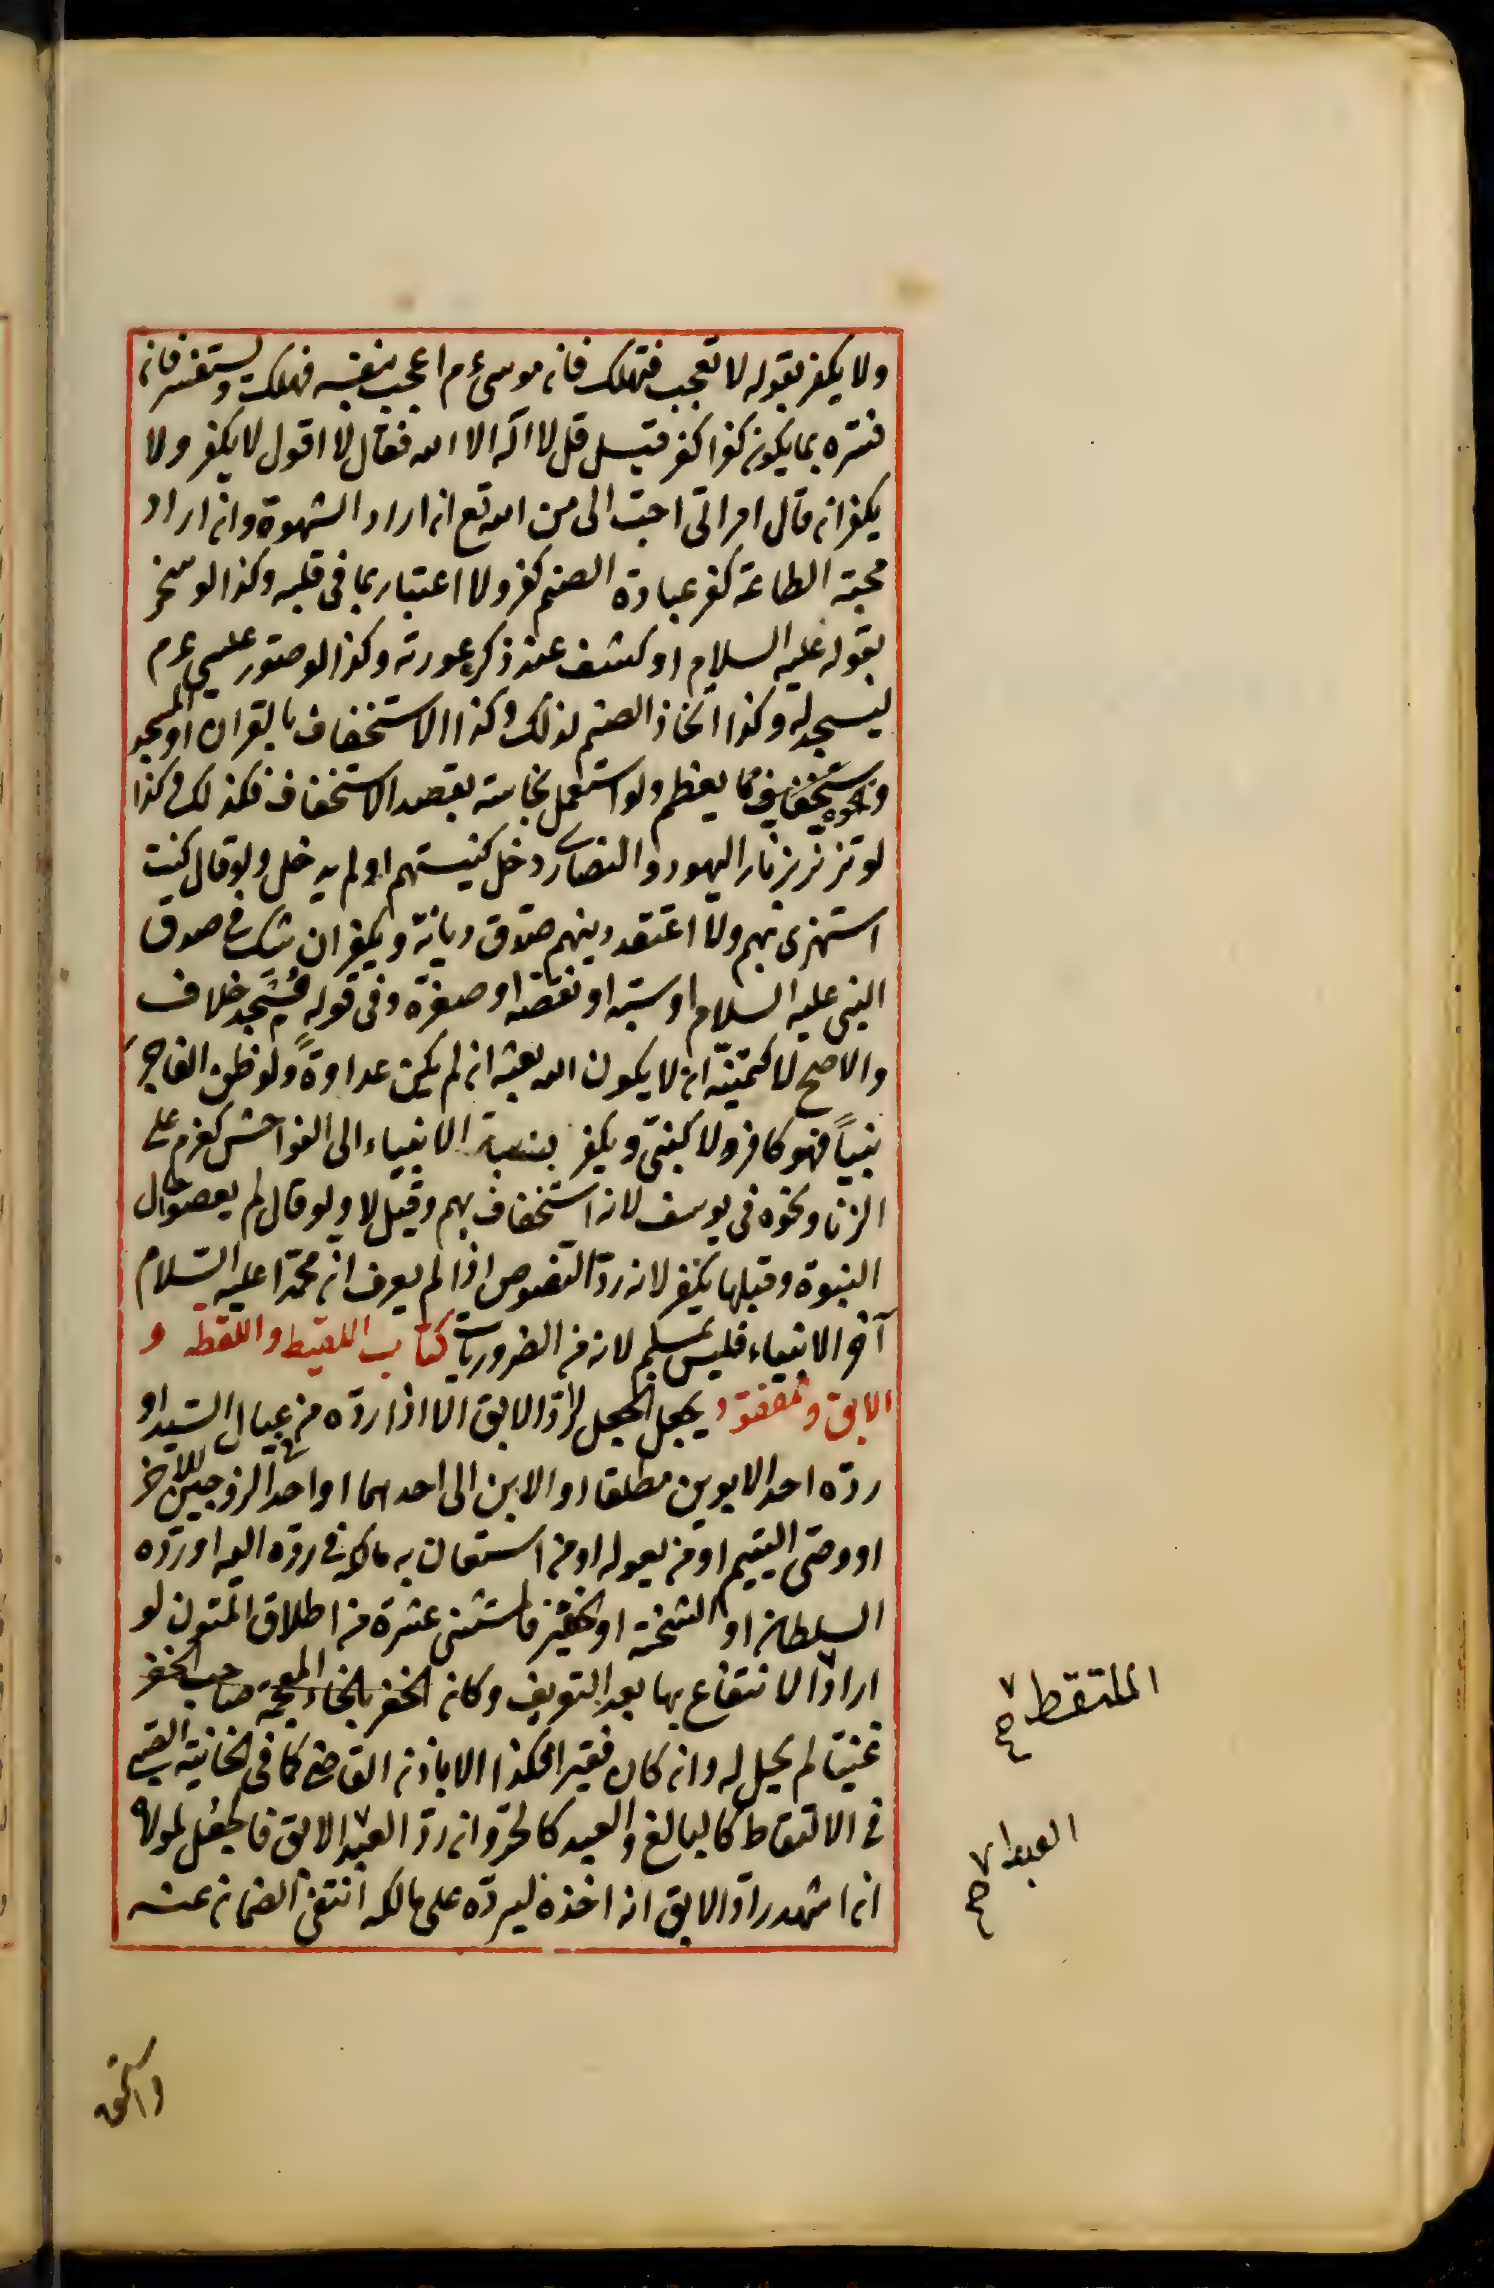 ولا يكفر بقوله لا تعجب فتهلك فان موسى ءم اعجب بنفسه فهلك ويستفسر فان
فسره بما يكون كفرا كفر قيل قل لا اله الا الله فقال لا اقول لا يكفر ولا
يكفر ان قال امراتى احب الى من الله تع ان اراد الشهوة وان اراد
محبة الطاعة كفر عبادة الصنم كفر ولا اعتبار بما فى قلبه وكذا لو سخر
بقوله عليه السلام او كشف عند ذكره عورته وكذا لو صور عيسى ءم
ليسجد له وكذا اتخاذ الصنم لذلك وكذا الاستخفاف بالقران او المسجد
ونحوه مما يعظم ولو استعمل نجاسة بقصد الاستخفاف فكذلك وكذا
لو تزنر بزنار اليهود والنصارى دخل كنيستهم او لم يدخل ولو قال كنت
استهزى بهم ولا اعتقد دينهم صدق ديانة ويكفر ان شك فى صدق
النبى عليه السلام او سبه او نقصه او صغره وفى قوله مسيجد خلاف
والاصح لا كتمنيه ان لا يكون الله بعثه ان لم يكن عداوة ولو ظن الفاجر
نبيا فهو كافر ولا كنبى ويكفر بنسبة الانبياء الى الفواحش كعزم على
الزنا ونحوه فى يوسف لانه استخفاف بهم وقيل لا ولو قال لم يعصوا حال
النبوة وقبلها يكفر لانه رد النصوص اذا لم يعرف ان محمدا عليه السلام
آخر الانبياء فليس بمسلم لانه من الضروريات كتاب اللقيط واللقطة و
الابق والمفقود يجعل الجعل لراد الابق الا اذا رده من عيال السيد او
رده احد الابوين مطلقا او الابن الى احدهما او احد الزوجين للآخر
او وصى اليتيم او من يعوله او من استعان به مالكه فى رده اليه او رده
السلطان او الشحنة او الخفير فالمستثنى عشرة من اطلاق المتون لو
اراد الانتفاع بها بعد التعريف وكان الخفر بالخاء المعجمة صاحب الخفر
غنيا لم يحل له وان كان فقيرا فكذا الا باذن القاضى كما فى الخانية الصبى
فى الالتقاط كالبالغ والعبد كالحر وان رد العبد الابق فالجعل لمولاه
ان اشهد راد الابق انه اخذه ليرده على مالكه انتفى الضمان عنه
الملتقط
صح
العبد
صح
واستحق